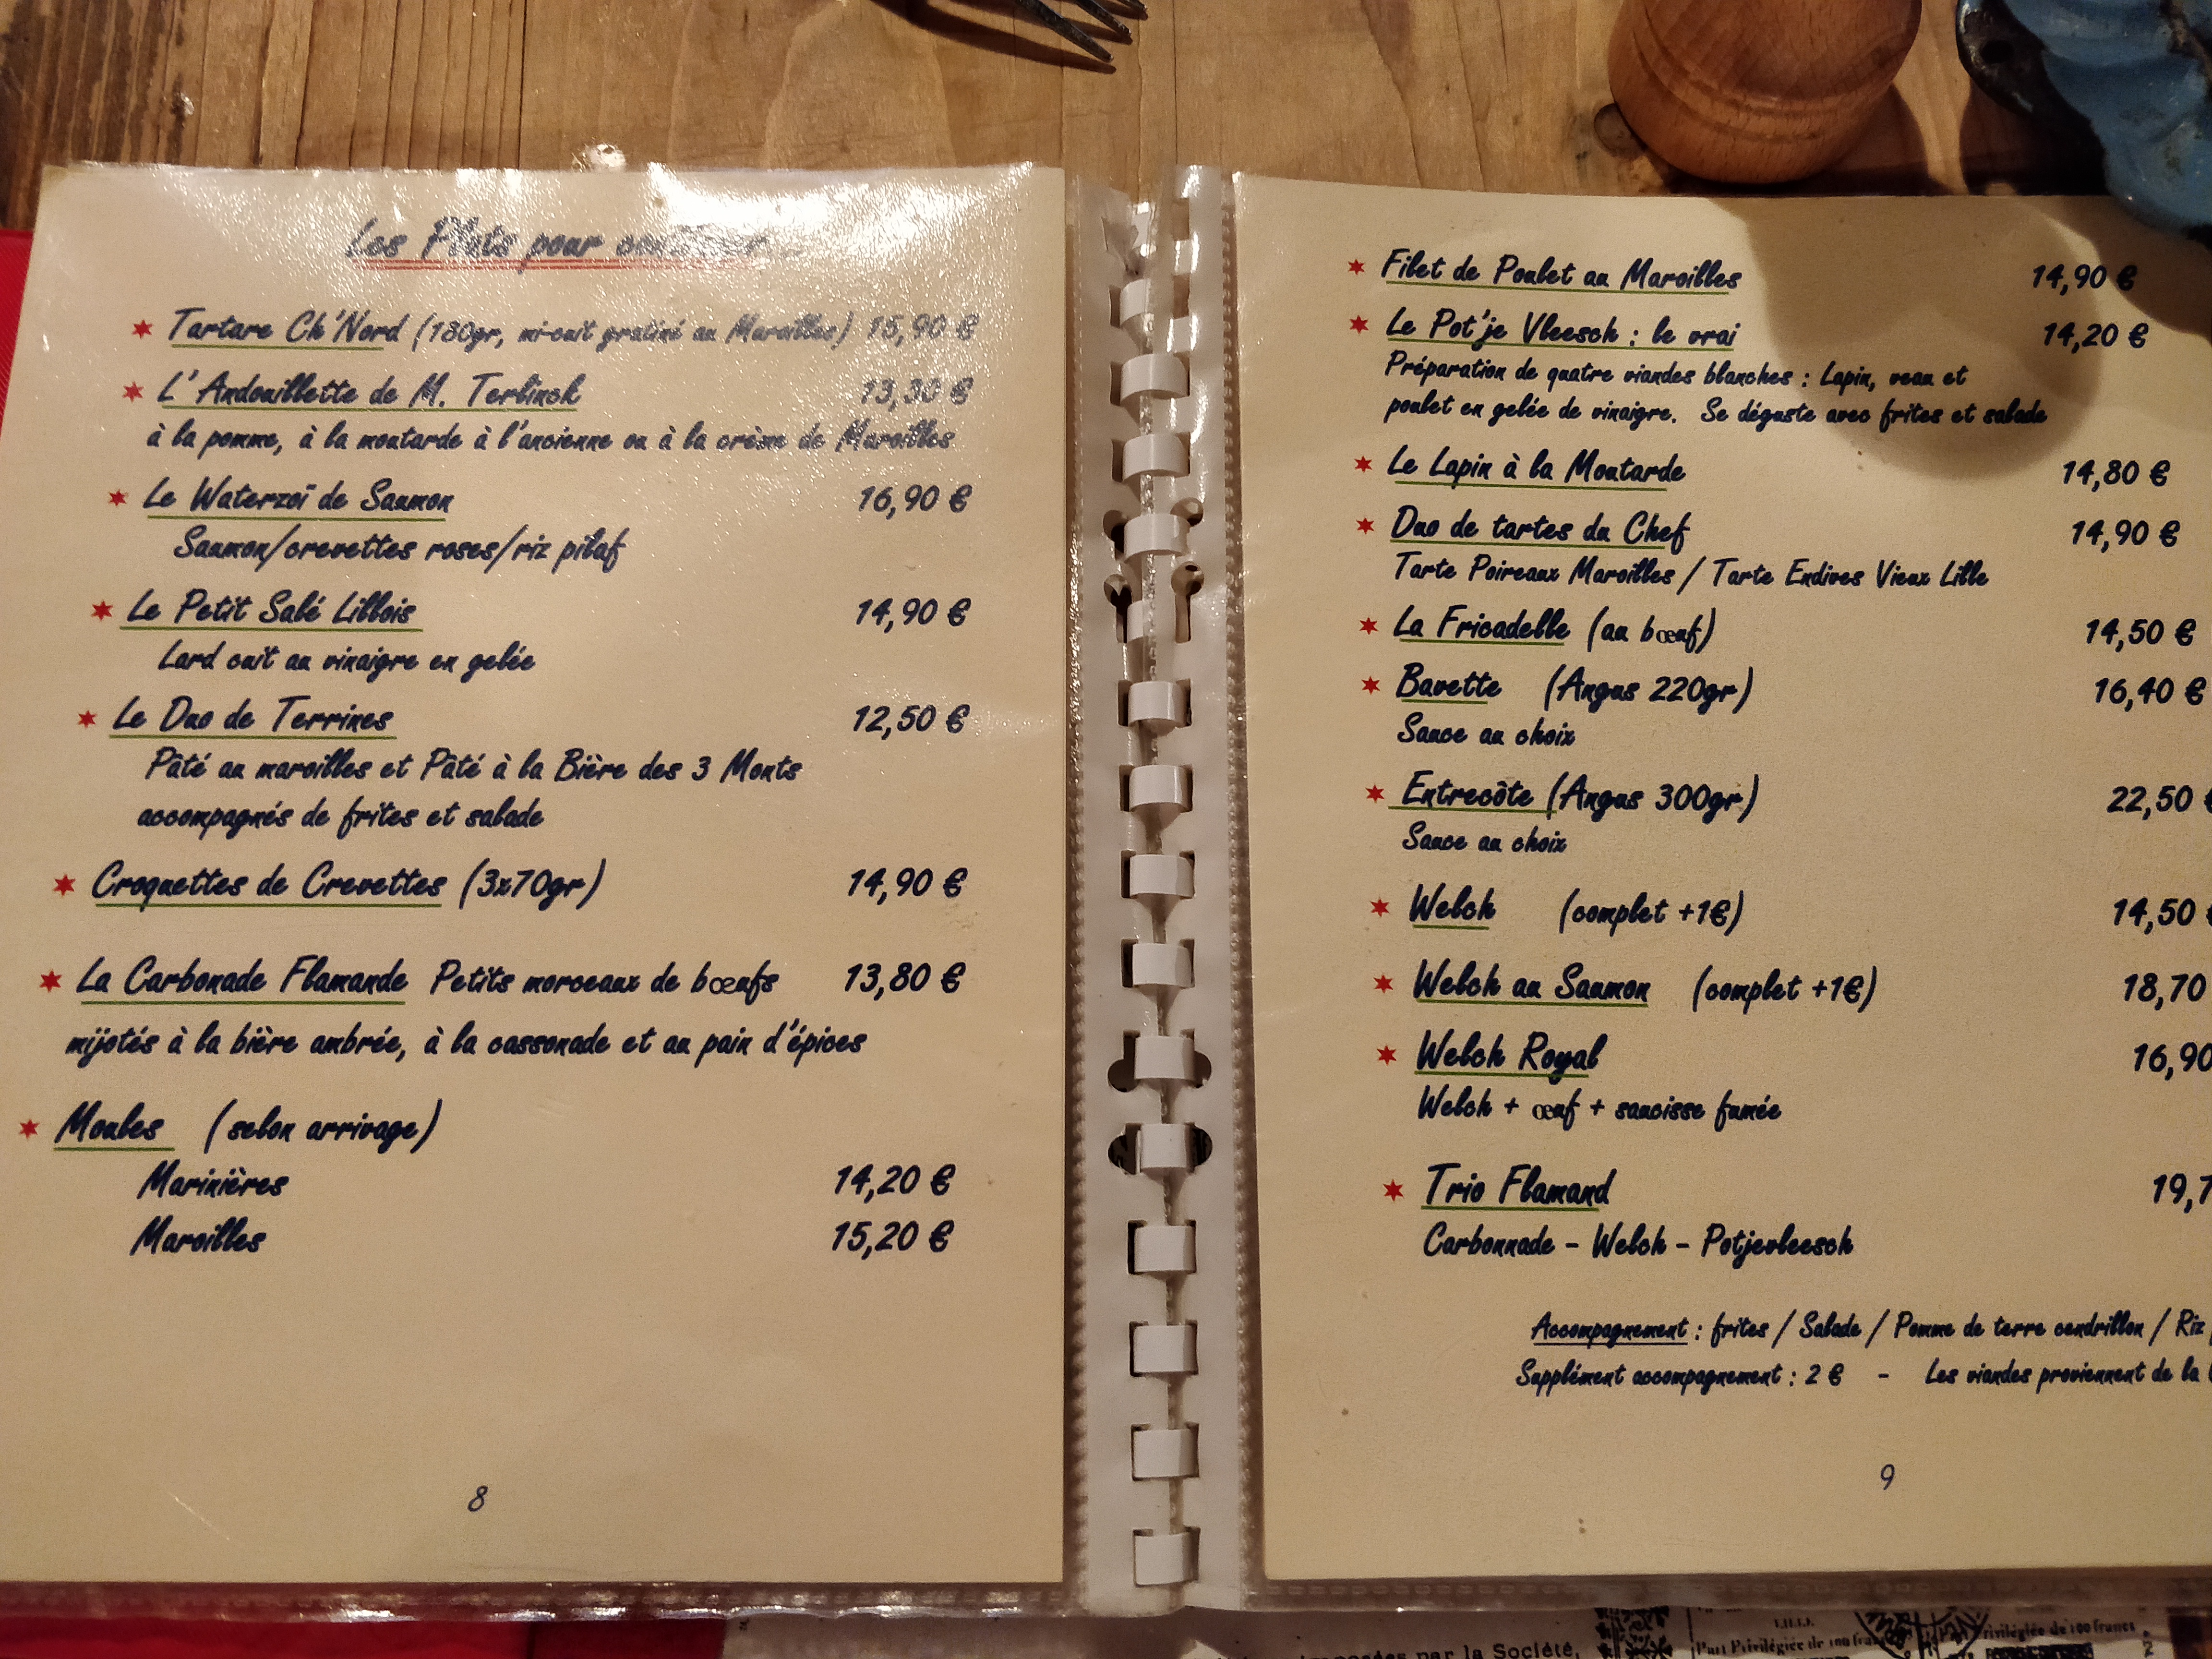 Les Plats pour continuer...
Tartare Ch'Nord (180gr, mi-cuit gratiné au Maroilles) 15,90 €
L'Andouillette de M. Terlinck 13,30 €
à la pomme, à la moutarde à l'ancienne ou à la crème de Maroilles
Le Waterzoï de Saumon 16,90 €
Saumon/crevettes roses/riz pilaf
Le Petit Salé Lillois 14,90 €
Lard cuit au vinaigre en gelée
Le Duo de Terrines 12,50 €
Pâté au maroilles et Pâté à la Bière des 3 Monts
accompagnés de frites et salade
Croquettes de Crevettes (3x70gr) 14,90 €
La Carbonade Flamande Petits morceaux de bœufs 13,80 €
mijotés à la bière ambrée, à la cassonade et au pain d'épices
Moules (selon arrivage)
Marinières 14,20 €
Maroilles 15,20 €
8
Filet de Poulet au Maroilles 14,90 €
Le Pot'je Vleesch : le vrai 14,20 €
Préparation de quatre viandes blanches : Lapin, veau et
poulet en gelée de vinaigre. Se déguste avec frites et salade
Le Lapin à la Moutarde 14,80 €
Duo de tartes du Chef 14,90 €
Tarte Poireaux Maroilles / Tarte Endives Vieux Lille
La Fricadelle (au bœuf) 14,50 €
Bavette (Angus 220gr) 16,40 €
Sauce au choix
Entrecôte (Angus 300gr) 22,50 €
Sauce au choix
Welch (complet +1€) 14,50 €
Welch au Saumon (complet +1€) 18,70
Welch Royal 16,90
Welch + œuf + saucisse fumée
Trio Flamand 19,7
Carbonnade - Welch - Potjevleesch
Accompagnement : frites / Salade / Pomme de terre cendrillon / Riz
Supplément accompagnement : 2 € - Les viandes proviennent de la
9
par la Société,
Part Privilégiée de 100 francs
Privilégiée de 100 francs